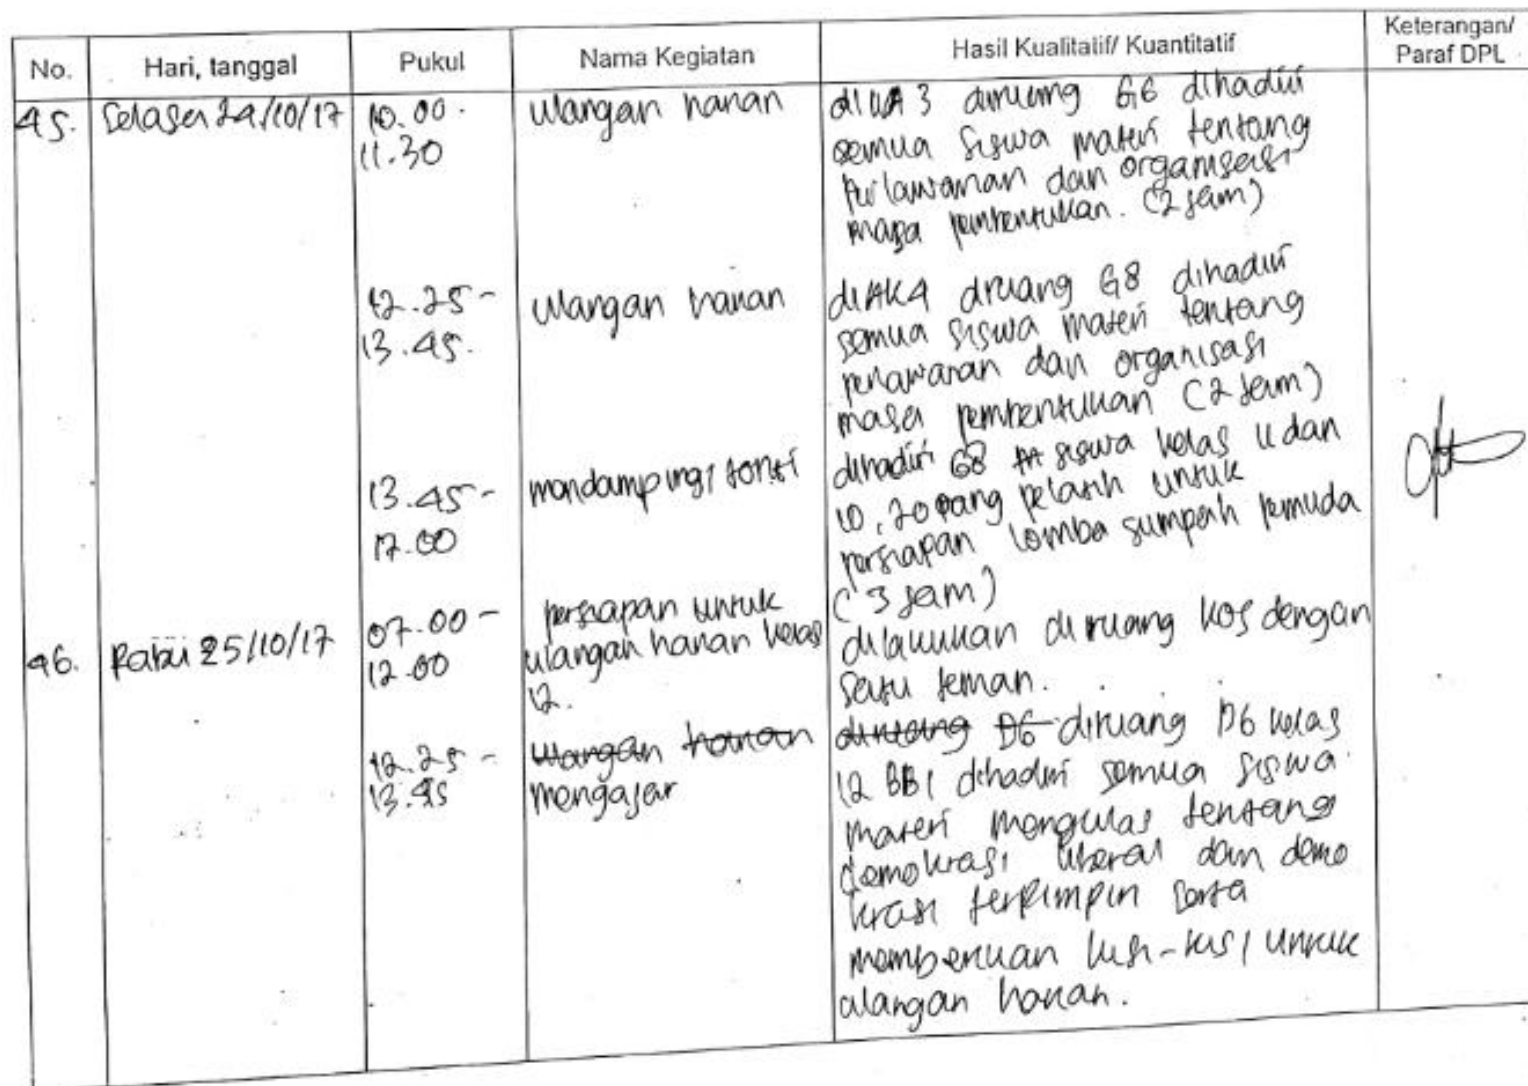 No. Hari, tanggal Pukul Nama Kegiatan Hasil Kualitatif/ Kuantitatif Keterangan/ Paraf DPL
45. Selasa 24/10/17 10.00 - ulangan harian di 3 diruang G6 dihadiri
11.30 semua siswa materi tentang
perlawanan dan organisasi
masa pembentukan. (2 jam)
12.25 - ulangan harian di AK4 diruang G8 dihadiri
13.45. semua siswa materi tentang
dan organisasi
masa pembentukan (2 jam)
13.45 - mendampingi tonti dihadiri 68 siswa kelas 11 dan
17.00 10, 20 pelatih untuk
persiapan lomba sumpah pemuda
(3 jam)
46. Rabu 25/10/17 07.00 - persiapan untuk dilakukan di ruang kos dengan
12.00 ulangan harian kelas satu teman.
12.
12.25 - ulangan harian diruang D6 diruang D6 kelas
13.45 mengajar 12 BB1 dihadiri semua siswa
materi mengulas tentang
demokrasi liberal dan demo
krasi terpimpin serta
memberikan kisi-kisi untuk
ulangan harian.